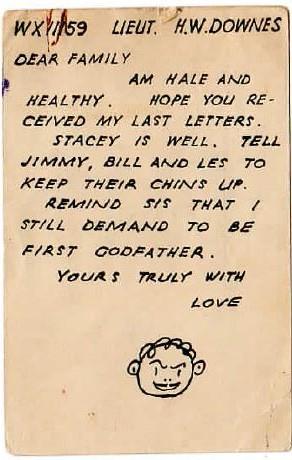 WX11159 LIEUT. H.W. DOWNES
DEAR FAMILY
AM HALE AND
HEALTHY. HOPE YOU RE-
CEIVED MY LAST LETTERS.
STACEY IS WELL. TELL
JIMMY, BILL AND LES TO
KEEP THEIR CHINS UP.
REMIND SIS THAT I
STILL DEMAND TO BE
FIRST GODFATHER.
YOURS TRULY WITH
LOVE